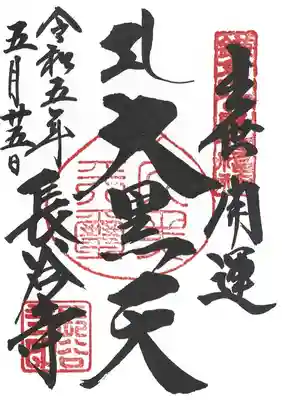 出世開運
大黒天
令和五年
五月廿五日
長谷寺